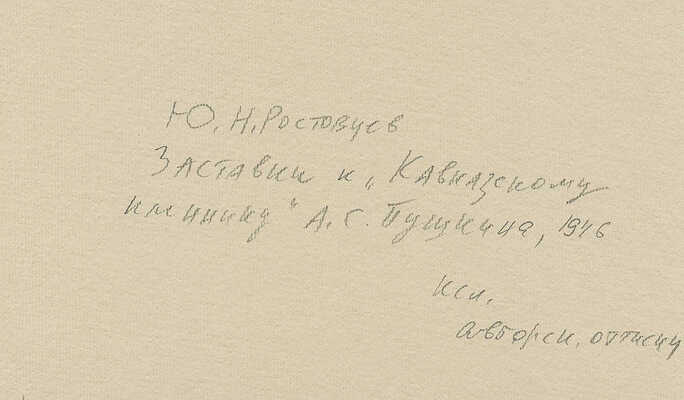 Ю. Н. Ростовцев
Заставки к „Кавказскому
пленнику" А. С. Пушкина, 1946
ксл.
авторск. оттиски